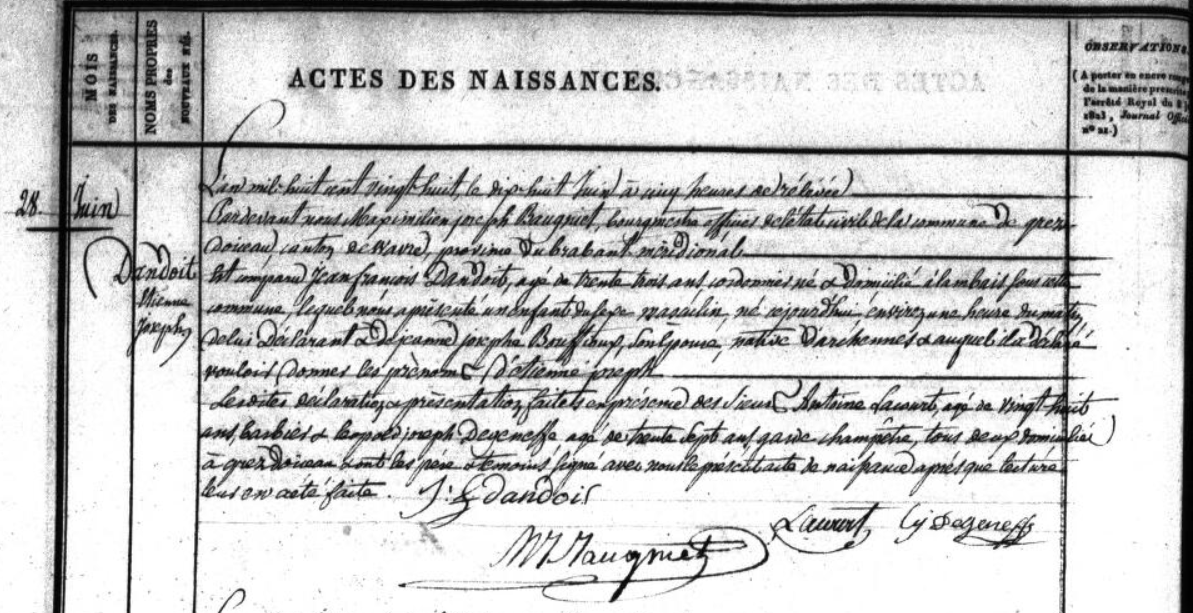 MOIS
DES NAISSANCES.
NOMS PROPRES
des
NOUVEAUX NÉS.
ACTES DES NAISSANCES.
OBSERVATIONS.
(A porter en encre rouge
de la manière prescrite
l'arrêté Royal du 8
1823, Journal Offi
n° 22.)
28. Juin
Dandoit
Etienne
Joseph
L'an mil huit cent vingt huit, le dix huit Juin à cinq heures de rélévée
Pardevant nous Maximilien joseph Bauguiet, bourgmestre officier de l'état civil de la commune de grez
doiceau, canton de wavre, province du brabant méridional
Est comparu Jean françois Dandoit, agé de trente trois ans cordonnier né & domicilié à lambais sous cette
commune, lequel nous a présenté un enfant du sexe masculin, né cejourd'hui environ une heure du matin
de lui Déclarant & De jeanne josephe Bouffioux, son épouse, native D'archennes & auquel il a déclaré
vouloir donner les prénoms D'étienne joseph
Lesdites déclaration & présentation faites en présence des Sieurs Antoine Lacourt, agé de vingt huit
ans, barbier & leopold joseph Degeneffe agé de trente Sept ans, garde champêtre, tous deux domiciliés
à grez doiceau & ont les père & témoins signé avec nous le présent acte de naissance après que lecture
leur en a été faite. J: f Dandoit
Lacourt lj Degeneffe
M J Bauguiet